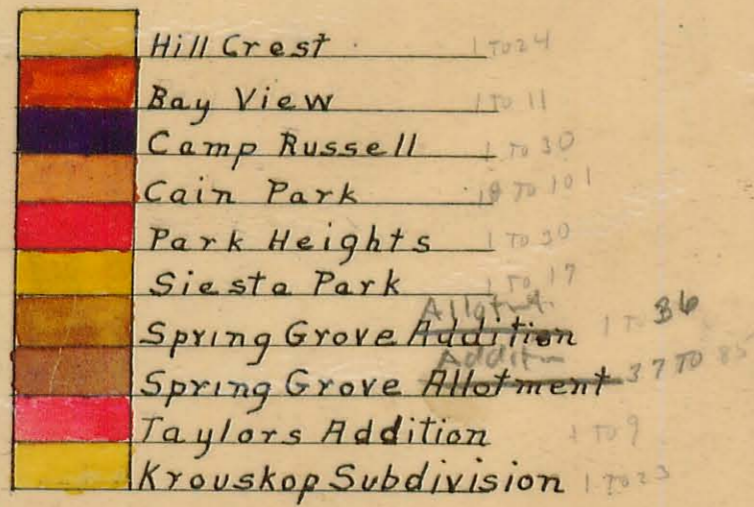 Hill Crest 1 TO 24
Bay View 1 TO 11
Camp Russell 1 TO 30
Cain Park 18 TO 101
Park Heights 1 TO 30
Siesta Park 1 TO 17
Allotmt.
Spring Grove Addition 1 TO 36
Addition
Spring Grove Allotment 37 TO 85
Taylors Addition 1 TO 9
Krouskop Subdivision 1 TO 23